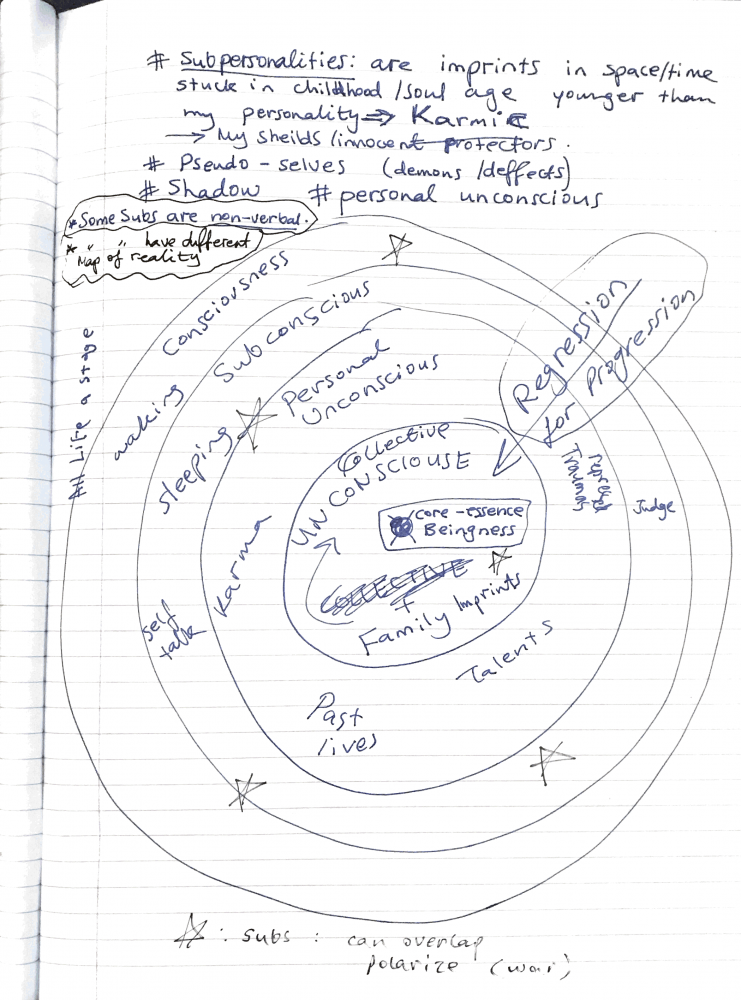 # Subpersonalities: are imprints in space/time
stuck in childhood /soul age younger than
my personality => Karmic
→ My sheilds /innocent protectors.
# Pseudo - selves (demons /deffects)
# Shadow # personal unconscious
* Some Subs are non-verbal.
* " " have different
Map of reality
All Life a stage
waking Consciousness
sleeping Subconscious
Personal
Unconscious
Regression
for progression
Collective
UNCONSCIOUSE
core-essence
Beingness
COLLECTIVE
+
Family Imprints
Karma
self
talk
Repressed
Traumas
Judge
Talents
Past
lives
☆: subs : can overlap
polarize (war)